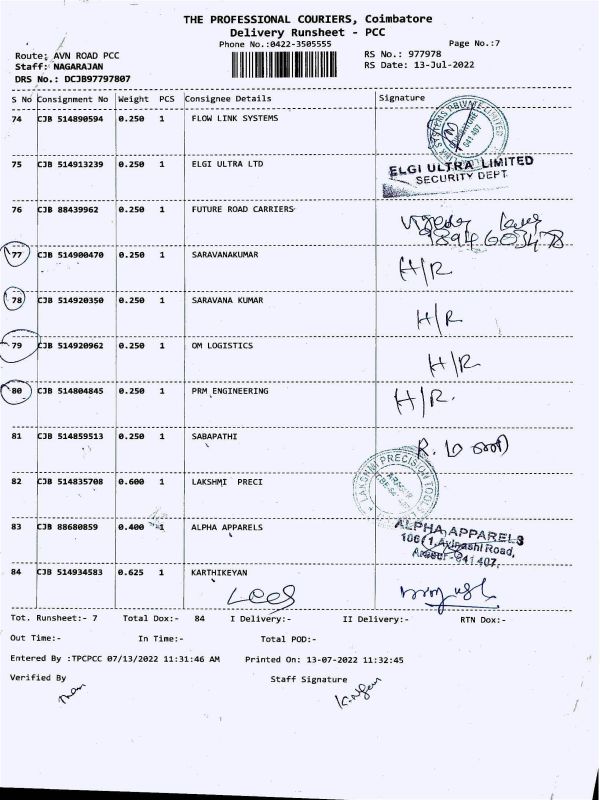 THE PROFESSIONAL COURIERS, Coimbatore
Delivery Runsheet - PCC
Phone No.:0422-3505555
Page No.:7
Route: AVN ROAD PCC
Staff: NAGARAJAN
DRS No.: DCJB97797807
RS No.: 977978
RS Date: 13-Jul-2022
S No Consignment No Weight PCS Consignee Details Signature
74 CJB 514890594 0.250 1 FLOW LINK SYSTEMS
75 CJB 514913239 0.250 1 ELGI ULTRA LTD
ELGI ULTRA LIMITED
SECURITY DEPT
76 CJB 88439962 0.250 1 FUTURE ROAD CARRIERS
77 CJB 514900470 0.250 1 SARAVANAKUMAR H/R
78 CJB 514920350 0.250 1 SARAVANA KUMAR H/R
79 CJB 514920962 0.250 1 OM LOGISTICS H/R
80 CJB 514804845 0.250 1 PRM ENGINEERING H/R.
81 CJB 514859513 0.250 1 SABAPATHI
82 CJB 514835708 0.600 1 LAKSHMI PRECI
83 CJB 88680859 0.400 1 ALPHA APPARELS
ALPHA APPARELS
106/1, Avinashi Road,
641 407.
84 CJB 514934583 0.625 1 KARTHIKEYAN
Tot. Runsheet:- 7 Total Dox:- 84 I Delivery:- II Delivery:- RTN Dox:-
Out Time:- In Time:- Total POD:-
Entered By :TPCPCC 07/13/2022 11:31:46 AM Printed On: 13-07-2022 11:32:45
Verified By Staff Signature